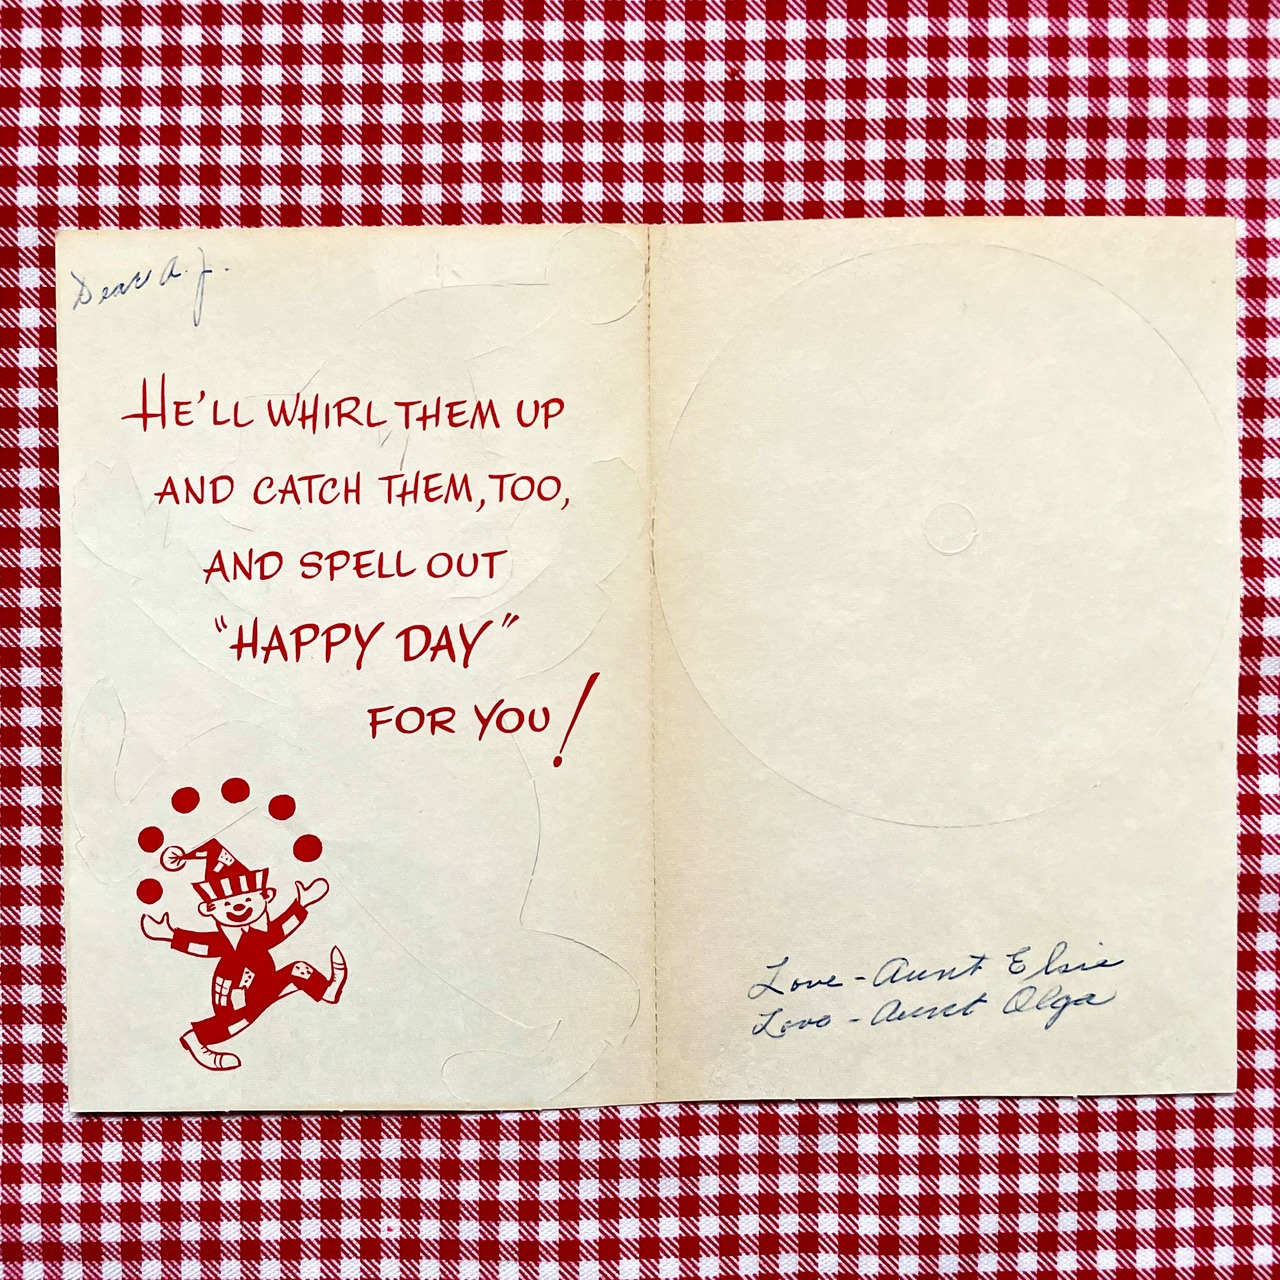 Dear A.J.
HE'LL WHIRL THEM UP
AND CATCH THEM, TOO,
AND SPELL OUT
"HAPPY DAY"
FOR YOU!
Love - Aunt Elsie
Love - Aunt Olga